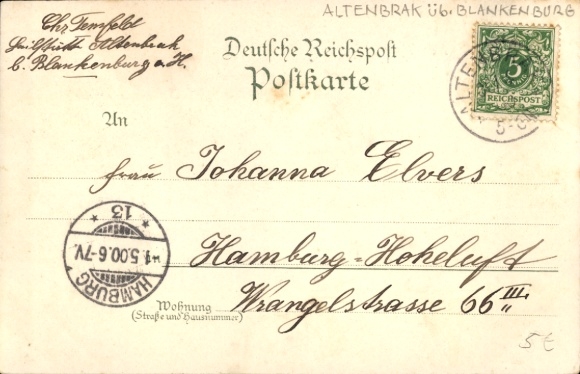 ALTENBRAK üb. BLANKENBURG
Chr. Temfeldt
Altenbrak
b. Blankenburg a. H.
Deutsche Reichspost
Postkarte
5
REICHSPOST
ALTENB
5-6N
An
Frau Johanna Elvers
Hamburg-Hoheluft
Wohnung
(Straße und Hausnummer)
Wrangelstrasse 66 III.
* 13 *
5.00.6-7V.
HAMBURG
5€